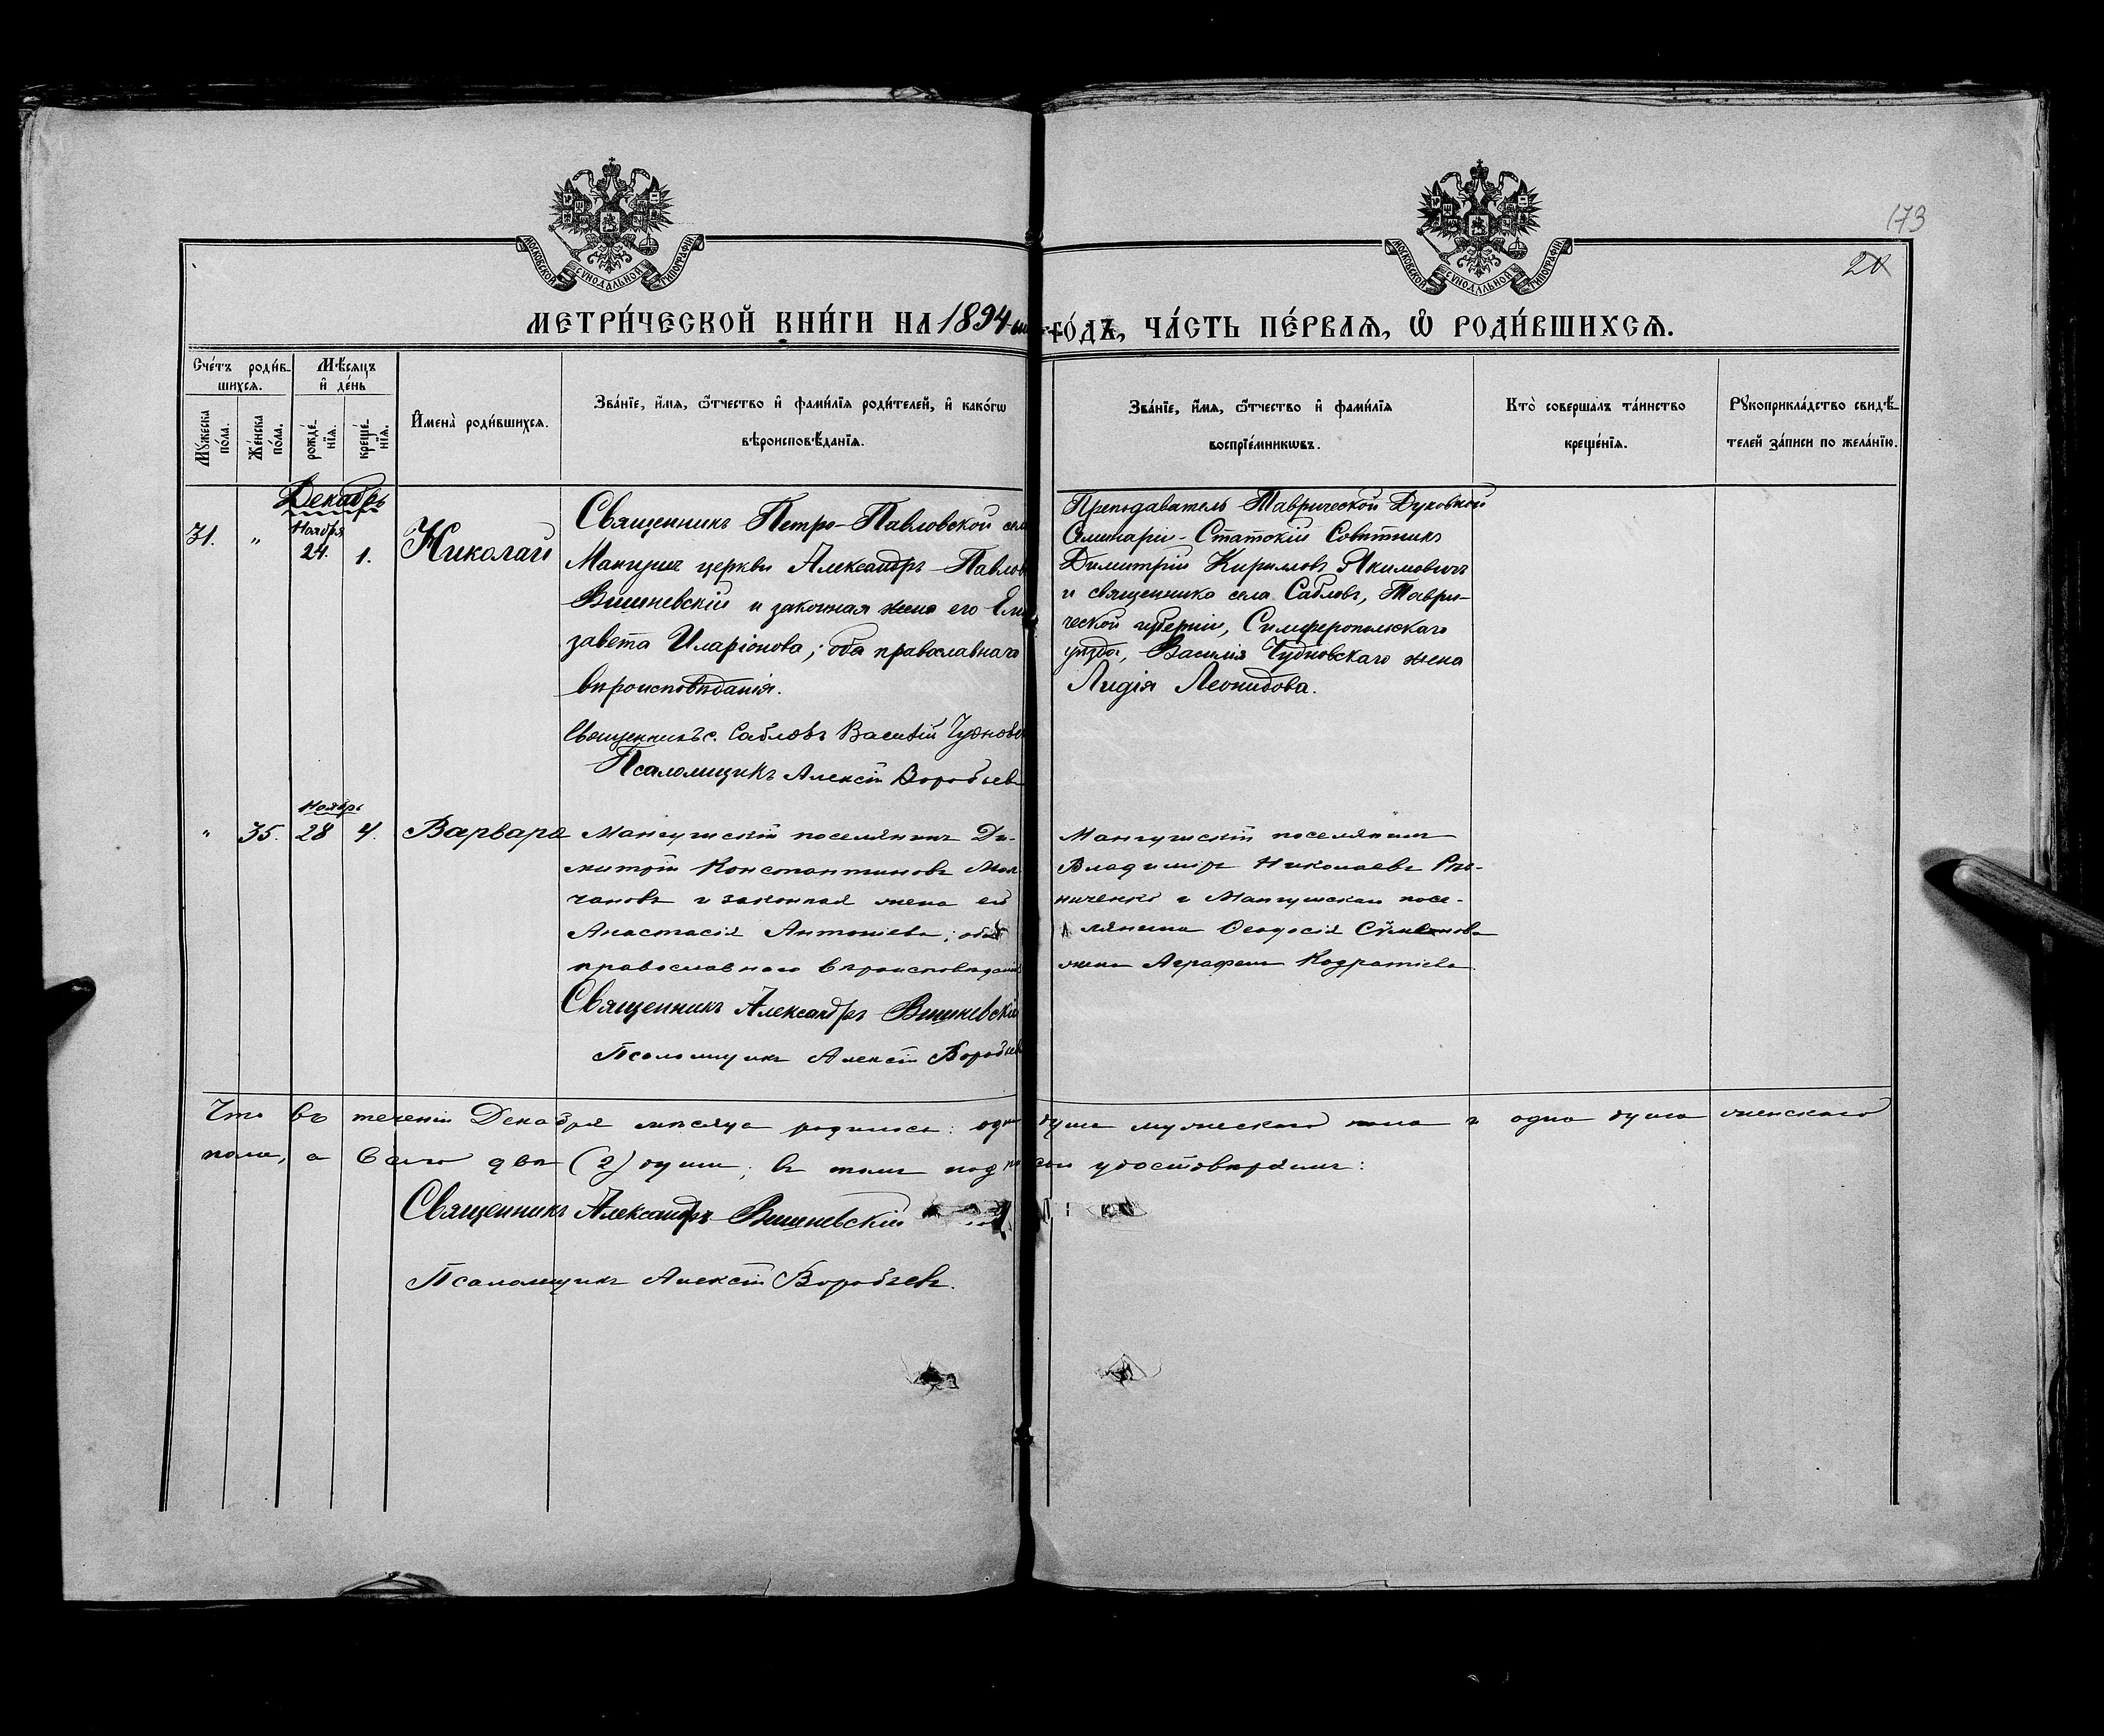 МОСКОВСКОЙ СѴНОДАЛЬНОЙ ТИПОГРАФІИ
МОСКОВСКОЙ СѴНОДАЛЬНОЙ ТИПОГРАФІИ
173
20
МЕТРИ́ЧЕСКОЙ КНИ́ГИ НА 1894 ГО́ДЪ, ЧА́СТЬ ПЕ́РВАѦ, Ѡ҆ РОДИ́ВШИХСѦ.
Сче́тъ роди́в-
шихсѧ.
Мѣ́сяцъ
и҆ де́нь
Мꙋ́жеска по́ла.
Же́нска по́ла.
рожде́-нїѧ.
креще́-нїѧ.
И҆мена̀ роди́вшихсѧ.
Зва́нїе, и҆́мѧ, ѻ҆́тчество и҆ фами́лїѧ роди́телей, и҆ како́гѡ
вѣроисповѣ́данїѧ.
Зва́нїе, и҆́мѧ, ѻ҆́тчество и҆ фами́лїѧ
воспрїе́мникѡвъ.
Кто̀ соверша́лъ та́инство
креще́нїѧ.
Рꙋкоприкла́дство свидѣ́-
телей за́писи по жела́нїю.
Декабрь
31. " Ноября 24. 1. Николай
Священникъ Петро-Павловской
Мангушъ церкви Александръ Павлов
Вишневскій и законная жена его Ели
завета Иларіонова; оба православнаго
вѣроисповѣданія.
Священникъ с. Сабловъ Василій Чуднов
Псаломщикъ Алексѣй Воробьев
Преподаватель Таврической Духовной
Семинаріи - Статскій Совѣтникъ
Димитрій Кирилловъ Якимовичъ
и священника села Сабловъ, Таври-
ческой губерніи, Симферопольскаго
уѣзда, Василія Чудновскаго жена
Лидія Леонидова.
" 35. Ноябрь 28 4. Варвара
Мангушскій поселянинъ Ди-
митрій Константиновъ Мол
чановъ и законная жена его
Анастасія Антоніева; оба
православнаго вѣроисповѣданія
Священникъ Александръ Вишневскій
Псаломщикъ Алексѣй Воробьев
Мангушскій поселянинъ
Владиміръ Николаевъ
и Мангушскаго посе-
лянина Ѳеодосія Сѵмеонова
жена Агрофена Кодратіева.
Что въ теченіи Декабря мѣсяца родилось: одна душа мужескаго пола и одна душа женскаго
пола, а всего двѣ (2) души; въ томъ подписью удостовѣряемъ:
Священникъ Александръ Вишневскій
Псаломщикъ Алексѣй Воробьевъ.